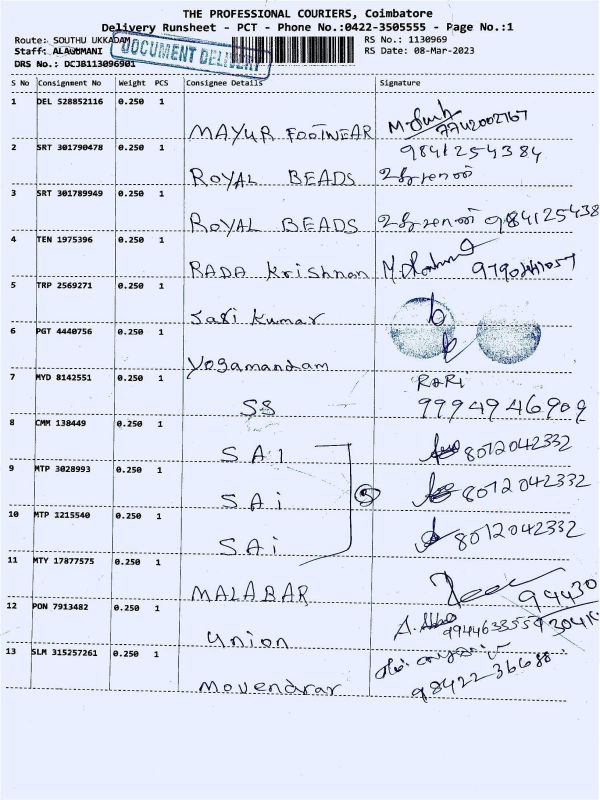 THE PROFESSIONAL COURIERS, Coimbatore
Delivery Runsheet - PCT - Phone No.:0422-3505555 - Page No.:1
Route: SOUTHU UKKADAM
RS No.: 1130969
Staff: ALAUMANI
DOCUMENT DELIVERY
RS Date: 08-Mar-2023
DRS No.: DCJB113096901
S No Consignment No Weight PCS Consignee Details Signature
1 DEL 528852116 0.250 1
MAYUR FOOTWEAR 7742002767
2 SRT 301790478 0.250 1 9841254384
ROYAL BEADS
3 SRT 301789949 0.250 1
ROYAL BEADS 984125438
4 TEN 1975396 0.250 1
RADA Krishnan
5 TRP 2569271 0.250 1
Sasi Kumar
6 PGT 4440756 0.250 1
Yogamandam
7 MYD 8142551 0.250 1
SS 9994946909
8 CMM 138449 0.250 1
SAI 8072042332
9 MTP 3028993 0.250 1
SAi 8072042332
10 MTP 1215540 0.250 1
SAi 8072042332
11 MTY 17877575 0.250 1
MALABAR
12 PON 7913482 0.250 1
Union
13 SLM 315257261 0.250 1
Movendrar 9842236688